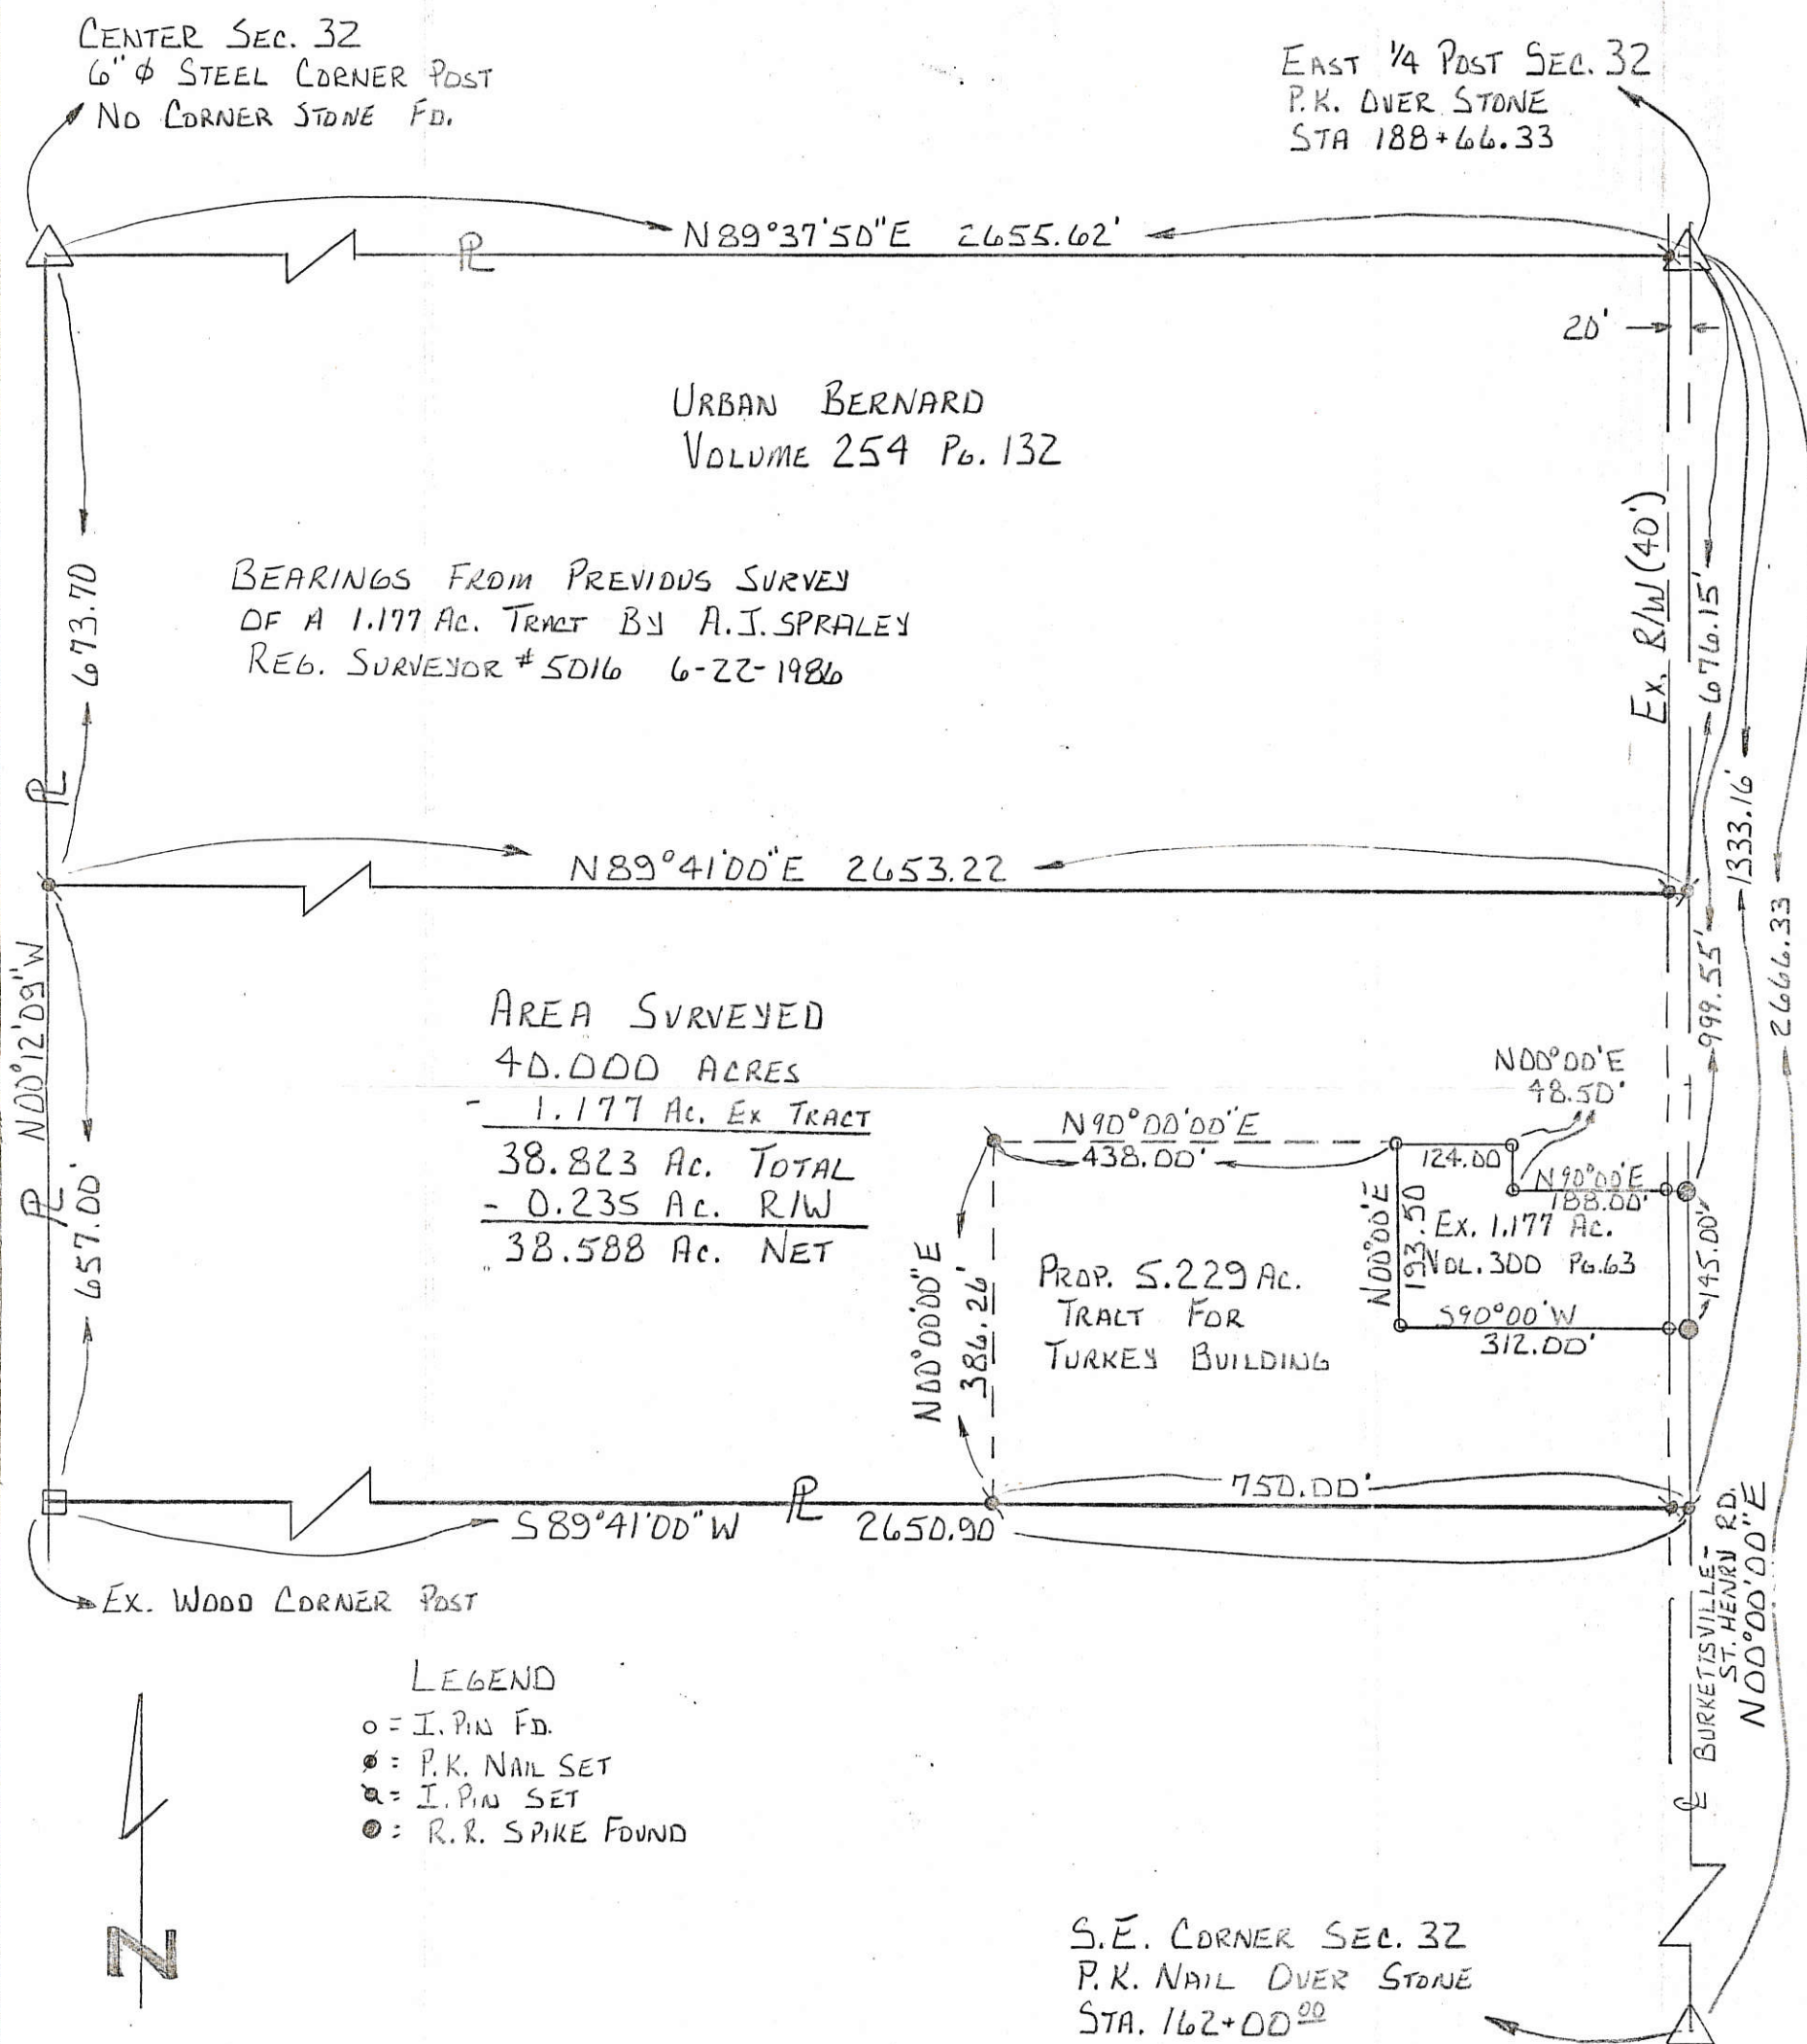 CENTER SEC. 32
6" φ STEEL CORNER POST
NO CORNER STONE FD.
EAST 1/4 POST SEC. 32
P.K. OVER STONE
STA 188+66.33
N89°37'50"E 2655.62'
PL
20'
URBAN BERNARD
VOLUME 254 PG. 132
EX. R/W (40')
676.15'
673.70
BEARINGS FROM PREVIOUS SURVEY
OF A 1.177 AC. TRACT BY A.J. SPRALEY
REG. SURVEYOR # 5016 6-22-1986
PL
1333.16'
N89°41'00"E 2653.22
999.55'
2666.33
N00°12'09"W
AREA SURVEYED
40.000 ACRES
- 1.177 AC. EX TRACT
38.823 AC. TOTAL
- 0.235 AC. R/W
38.588 AC. NET
N00°00'E
48.50'
N90°00'00"E
438.00'
124.00
N90°00'E
188.00'
PL
657.00'
N00°00'E
193.50
EX. 1.177 AC.
VOL. 300 PG. 63
145.00'
N00°00'00"E
386.26'
PROP. 5.229 AC.
TRACT FOR
TURKEY BUILDING
S90°00'W
312.00'
750.00'
S89°41'00"W PL 2650.90
EX. WOOD CORNER POST
BURKETTSVILLE-
ST. HENRY RD.
N00°00'00"E
CL
LEGEND
o = I. PIN FD.
: P.K. NAIL SET
= I. PIN SET
: R.R. SPIKE FOUND
N
S.E. CORNER SEC. 32
P.K. NAIL OVER STONE
STA. 162+00 00